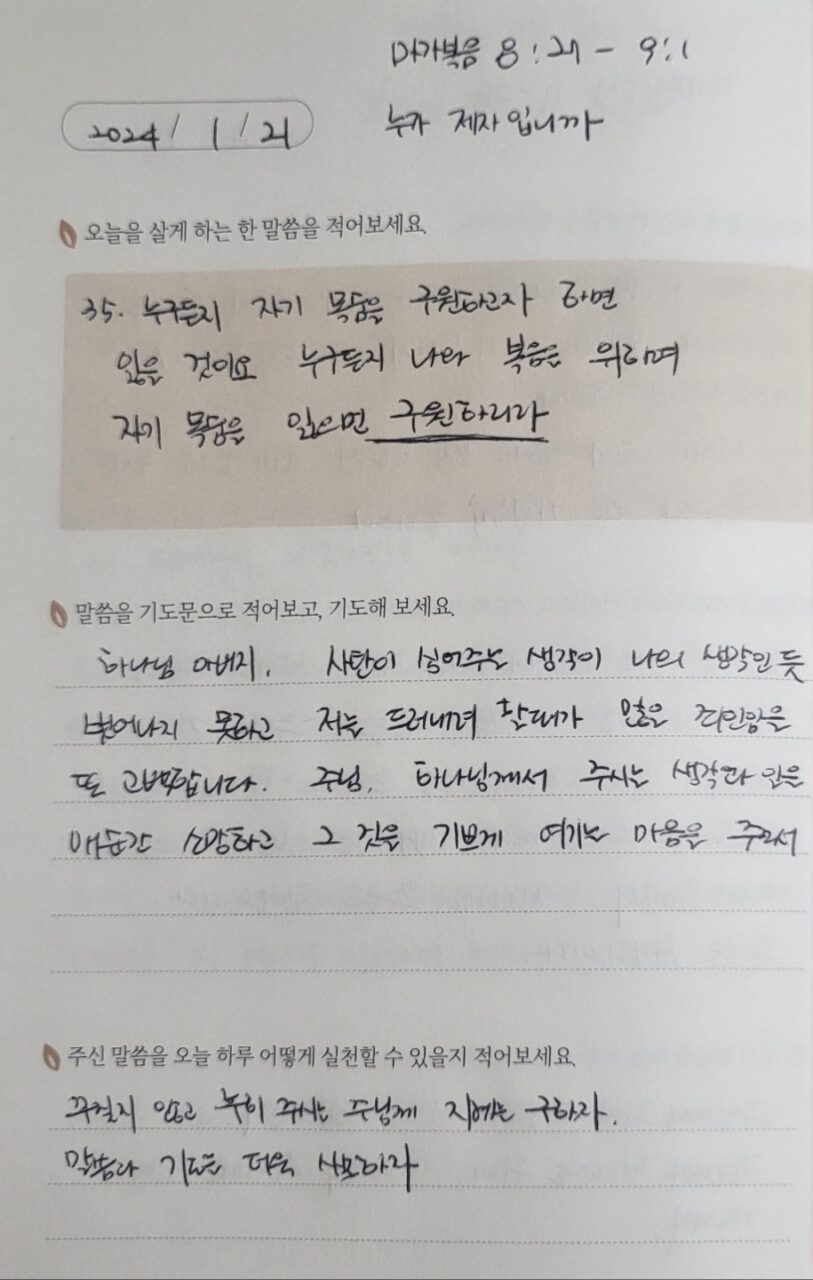 마가복음 8:27 - 9:1
2024 / 1 / 21
누가 제자입니까
오늘을 살게 하는 한 말씀을 적어보세요.
35. 누구든지 자기 목숨을 구원하고자 하면
잃을 것이요 누구든지 나와 복음을 위하여
자기 목숨을 잃으면 구원하리라
말씀을 기도문으로 적어보고, 기도해 보세요.
하나님 아버지, 사탄이 심어주는 생각이 나의 생각인 듯
벗어나지 못하고 저를 드러내려 할때가 많은 죄인임을
또 고백합니다. 주님, 하나님께서 주시는 생각과 일을
매순간 소망하고 그 것을 기쁘게 여기는 마음을 주소서
주신 말씀을 오늘 하루 어떻게 실천할 수 있을지 적어보세요.
꾸짖지 않고 후히 주시는 주님께 지혜를 구하자.
말씀과 기도를 더욱 사모하자